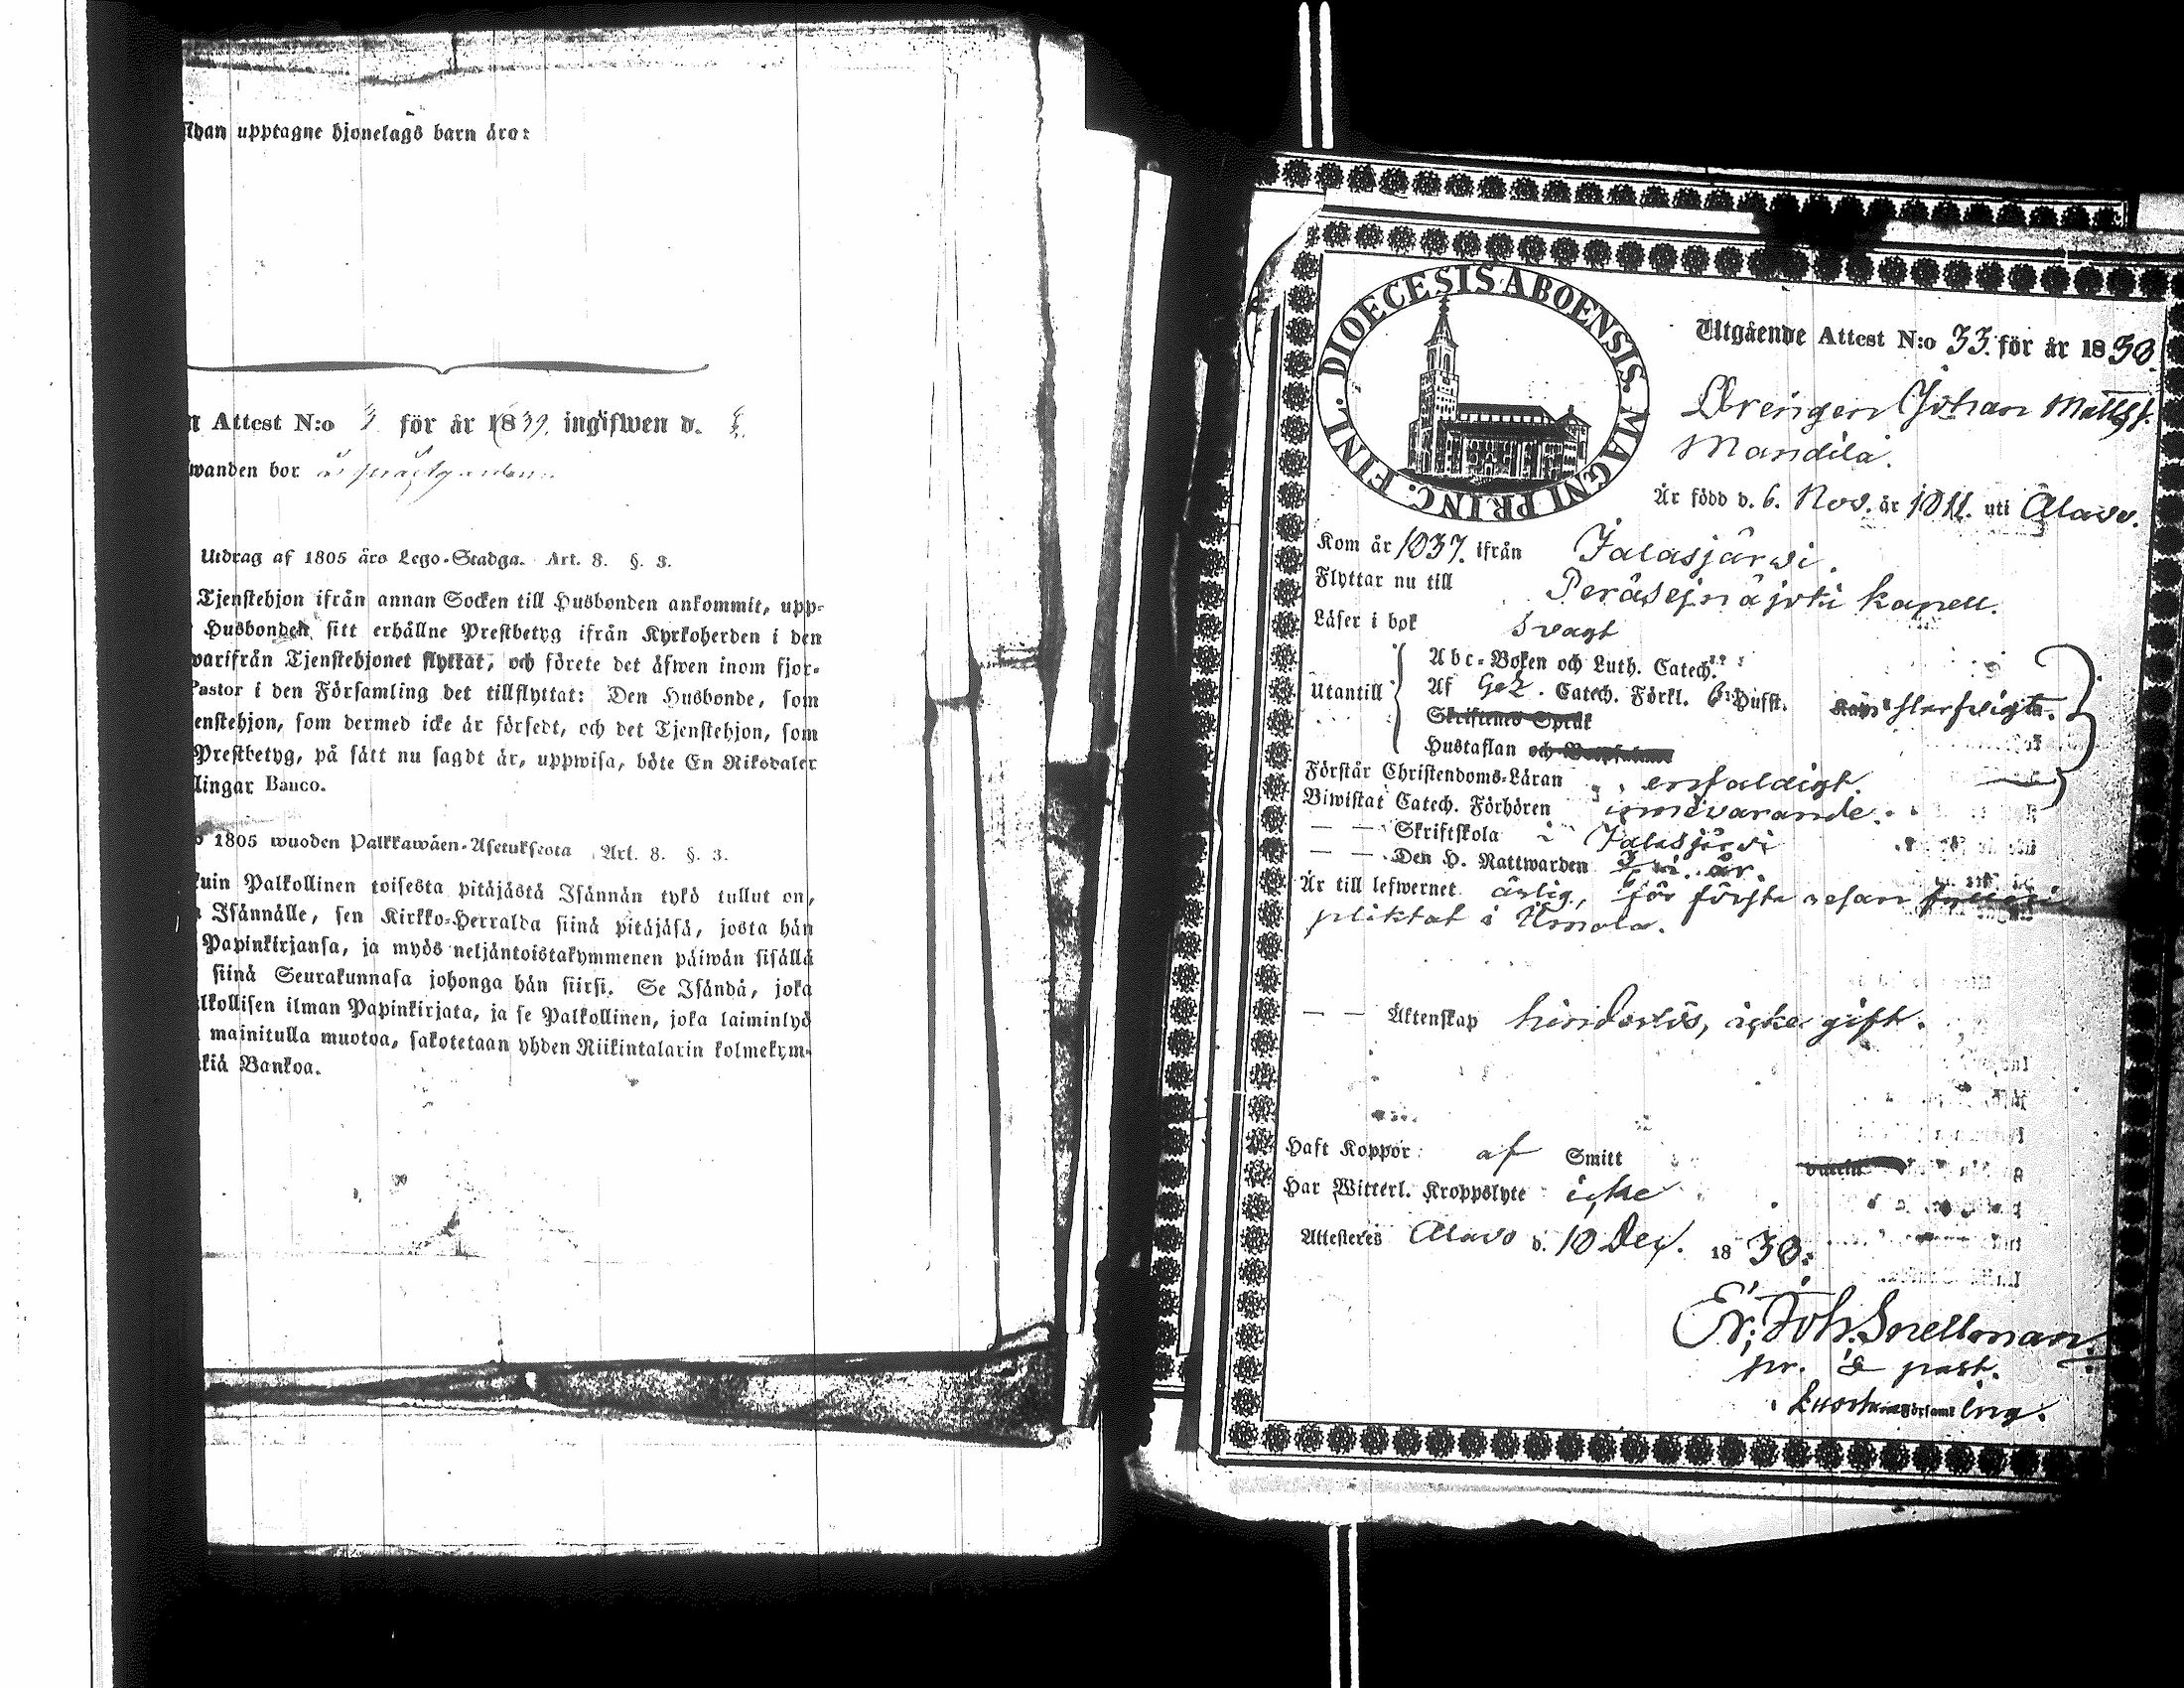 upptagne hjonelags barn äro:
Attest N:o 3 för år 1839. ingifwen d.
wanden bor
Utdrag af 1805 års Lego-Stadga. Art. 8. §. 3.
Tjenstehjon ifrån annan Socken till Husbonden ankommit, upp-
Husbonden sitt erhållne Prestbetyg ifrån Kyrkoherden i den
warifrån Tjenstehjonet flyttat, och förete det äfwen inom fjor-
Pastor i den Församling det tillflyttat: Den Husbonde, som
enstehjon, som dermed icke är försedt, och det Tjenstehjon, som
Prestbetyg, på sätt nu sagdt är, uppwisa, böte En Riksdaler
lingar Banco.
1805 wuoden Palkkawäen-Asetuksesta Art. 8. §. 3.
kuin Palkollinen toisesta pitäjästä Isännän tykö tullut on,
Isännälle, sen Kirkko-Herralda siinä pitäjäsä, josta hän
Papinkirjansa, ja myös neljäntoistakymmenen päiwän sisällä
siinä Seurakunnasa johonga hän siirsi. Se Isändä, joka
alkollisen ilman Papinkirjata, ja se Palkollinen, joka laiminlyö
mainitulla muotoa, sakotetaan yhden Riikintalarin kolmekym-
kiä Bankoa.
DIOECESIS ABOENSIS. MAGNI PRINC. FINL.
Utgående Attest N:o 33. för år 1838.
Drengen Johan Mattss.
Mandila.
Är född d. 6. Nov. år 1811. uti Alavo.
Kom år 1837. ifrån Jalasjärwi.
Flyttar nu till Peräsejnäjoki kapell.
Läser i bok svagt
Utantill
Abc-Boken och Luth. Catech.
Af Catech. Förkl. 6 Hufst.
Skriftenes Språk
Hustaflan och
Förstår Christendoms-Läran enfaldigt.
Biwistat Catech. Förhören
— — Skriftskola i Jalasjärvi
— — Den H. Nattwarden
Är till lefwernet ärlig, för första resan
pliktat i Ilmola.
— — Äktenskap hinderlös, icke gift.
Haft Koppor af Smitt
Har Witterl. Kroppslyte icke
Attesteras Alavo d. 10 Dec. 1838.
Er. Joh. Snellman.
pr. & past.